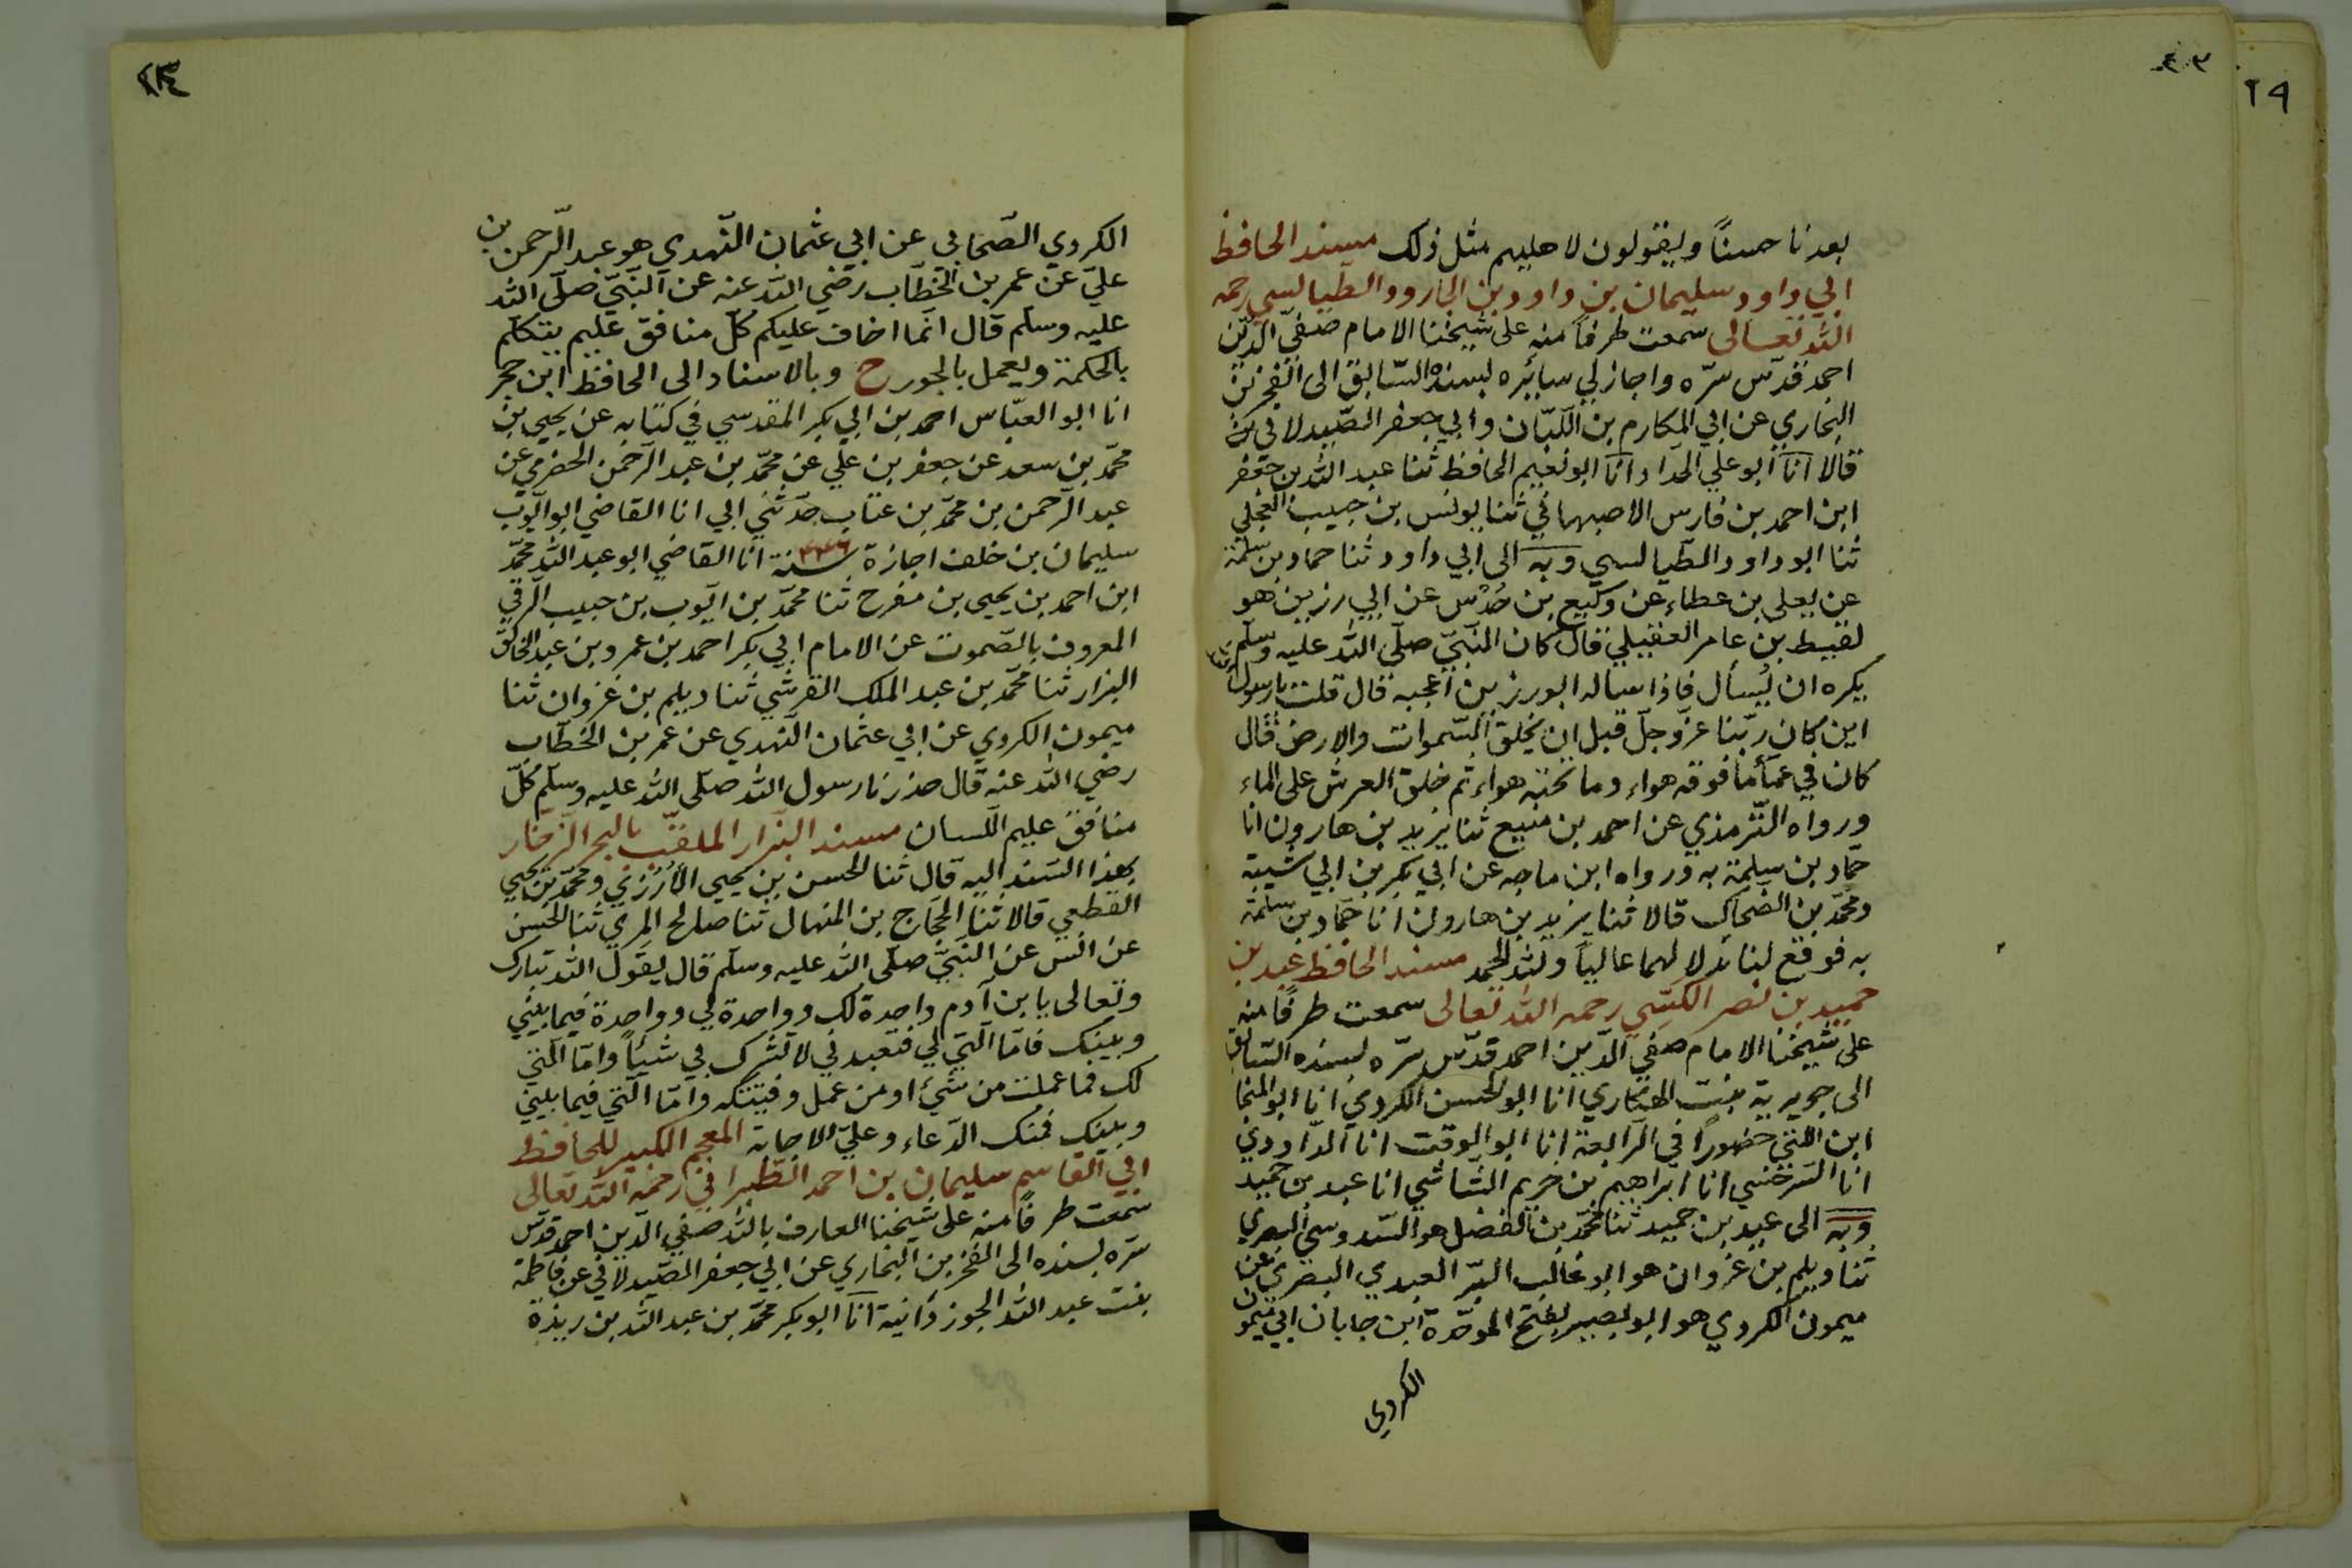 ٢٩
بعدنا حسنًا ويقولون لاهليهم مثل ذلك مسند الحافظ
ابي داود سليمان بن داود بن الجارود الطيالسي رحمه
الله تعالى سمعت طرفًا منه على شيخنا الامام صفيّ الدّين
احمد قدّس سرّه واجاز لي سائره بسنده السّابق الى الفخر بن
البخاري عن ابي المكارم بن اللّبّان وابي جعفر الصّيدلاني
قالا انا ابو علي الحدّاد انا ابو نعيم الحافظ ثنا عبد الله بن جعفر
ابن احمد بن فارس الاصبهاني ثنا يونس بن حبيب العجلي
ثنا ابو داود الطّيالسي وبه الى ابي داود ثنا حماد بن سلمة
عن يعلى بن عطاء عن وكيع بن حُدُس عن ابي رزين هو
لقيط بن عامر العقيلي قال كان النّبيّ صلّى الله عليه وسلّم
يكره ان يُسأل فاذا ساله ابو رزين اعجبه قال قلت يا رسول الله
اين كان ربّنا عزّ وجلّ قبل ان يخلق السّموات والارض فقال
كان في عمأ ما فوقه هواء وما تحته هواء ثم خلق العرش على الماء
ورواه التّرمذي عن احمد بن منيع ثنا يزيد بن هارون انا
حمّاد بن سلمة به ورواه ابن ماجه عن ابي بكر بن ابي شيبة
ومحمّد بن الصّباح قالا ثنا يزيد بن هارون انا حمّاد بن سلمة
به فوقع لنا بدلا لهما عاليًا ولله الحمد مسند الحافظ عبد بن
حميد بن نصر الكِسّي رحمه الله تعالى سمعت طرفًا منه
على شيخنا الامام صفي الدّين احمد قدّس سرّه بسنده السّابق
الى جويرية بنت الهكّاري انا ابو الحسن الكردي انا ابو المنجا
ابن اللّتي حضورًا في الرّابعة انا ابو الوقت انا الدّاوودي
انا السّرخسي انا ابراهيم بن خريم الشّاشي انا عبد بن حميد
وبه الى عبد بن حميد ثنا محمّد بن الفضل هو السّدوسي البصري
ثنا ديلم بن غزوان هو ابو غالب البرّ العبدي البصري عن
ميمون الكردي هو ابو بصير بفتح الموحّدة ابن جابان ابي ميمون
الكردي
الكردي الصّحابي عن ابي عثمان النّهدي هو عبد الرّحمن بن
عليّ عن عمر بن الخطّاب رضي الله عنه عن النّبيّ صلّى الله
عليه وسلّم قال انّما اخاف عليكم كلّ منافق عليم يتكلّم
بالحكمة ويعمل بالجور ح وبالاسناد الى الحافظ ابن حجر
انا ابو العبّاس احمد بن ابي بكر المقدسي في كتابه عن يحيى بن
محمّد بن سعد عن جعفر بن علي عن محمّد بن عبد الرّحمن الحضرمي عن
عبد الرّحمن بن محمّد بن عتاب حدّثني ابي انا القاضي ابو ايّوب
سليمان بن خلف اجازة سنة ٤٣٦ انا القاضي ابو عبد الله محمّد
ابن احمد بن يحيى بن مفرح ثنا محمّد بن ايّوب بن حبيب الرّقي
المعروف بالصّموت عن الامام ابي بكر احمد بن عمرو بن عبد الخالق
البزار ثنا محمّد بن عبد الملك القرشي ثنا ديلم بن غزوان ثنا
ميمون الكردي عن ابي عثمان النّهدي عن عمر بن الخطّاب
رضي الله عنه قال حذرنا رسول الله صلّى الله عليه وسلّم كلّ
منافق عليم اللّسان مسند البزار الملقّب بالبحر الزّخار
بهذا السّند اليه قال ثنا الحسن بن يحيى الأرُزّي ومحمّد بن يحيى
القطعي قالا ثنا الحجّاج بن المنهال ثنا صالح المري ثنا الحسن
عن انس عن النّبيّ صلّى الله عليه وسلّم قال يقول الله تبارك
وتعالى يا بن آدم واحدة لك وواحدة لي وواحدة فيما بيني
وبينك فامّا الّتي لي فتعبدني لا تشرك بي شيئًا وامّا الّتي
لك فما عملت من شيء او من عمل وفيتكه وامّا الّتي فيما بيني
وبينك فمنك الدّعاء وعليّ الاجابة المعجم الكبير للحافظ
ابي القاسم سليمان بن احمد الطّبراني رحمه الله تعالى
سمعت طرفًا منه على شيخنا العارف بالله صفي الدّين احمد قدّس
سرّه بسنده الى الفخر بن البخاري عن ابي جعفر الصّيدلاني عن فاطمة
بنت عبد الله الجوزدانية انا ابو بكر محمّد بن عبد الله بن ريذة